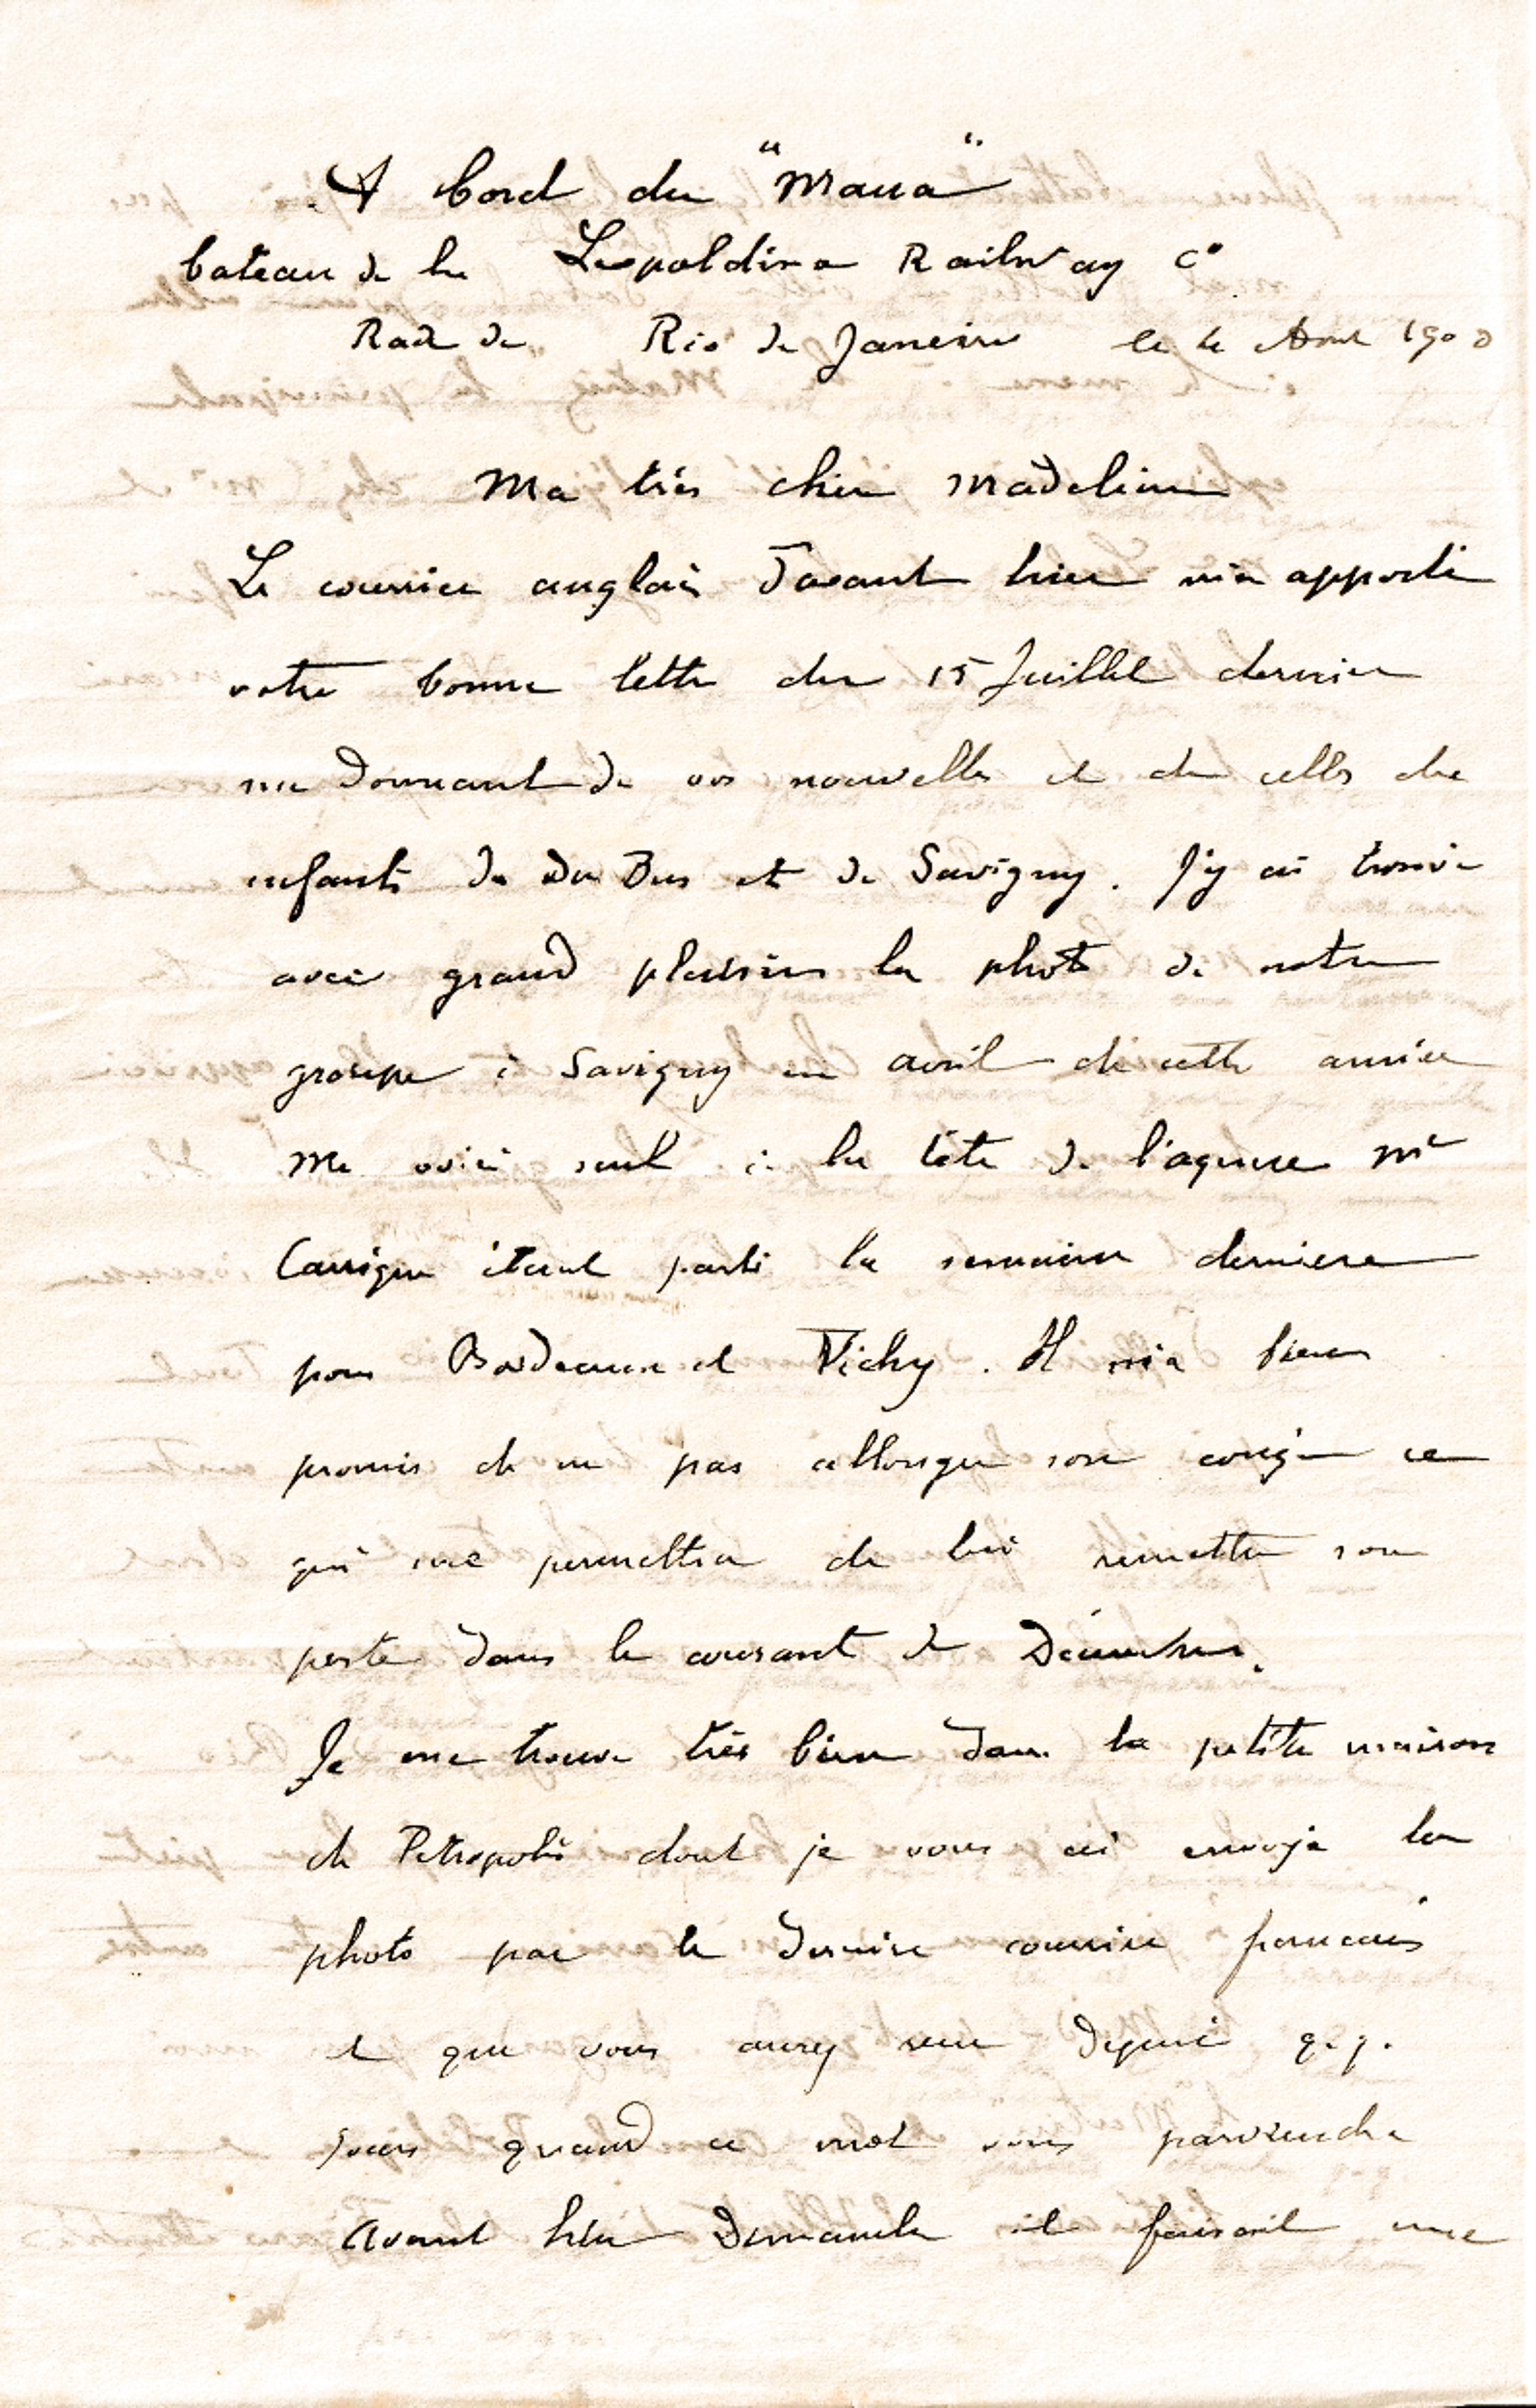 A bord du "Maua"
bateau de la Leopoldina Railway Co
Rade de Rio de Janeiro le Aout 190
Ma très chère Madeleine
Le courrier anglais d'avant hier m'a apporté
votre bonne lettre du 15 Juillet dernier
me donnant de vos nouvelles et de celles des
enfants de Du Bus et de Savigny. J'y ai trouvé
avec grand plaisir la photo de notre
groupe à Savigny en avril de cette année
Me voici seul à la tête de l'agence Mr
étant parti la semaine derniere
pour Bordeaux et Vichy. Il m'a bien
promis de ne pas allonger son congé ce
qui me permettra de lui remettre son
poste dans le courant de Décembre.
Je me trouve très bien dans la petite maison
de Petropolis dont je vous ai envoyé la
photo par le dernier courrier francais
et que vous aurez vue depuis q.q.
jours quand ce mot vous parviendra
Avant hier Dimanche il faisait une